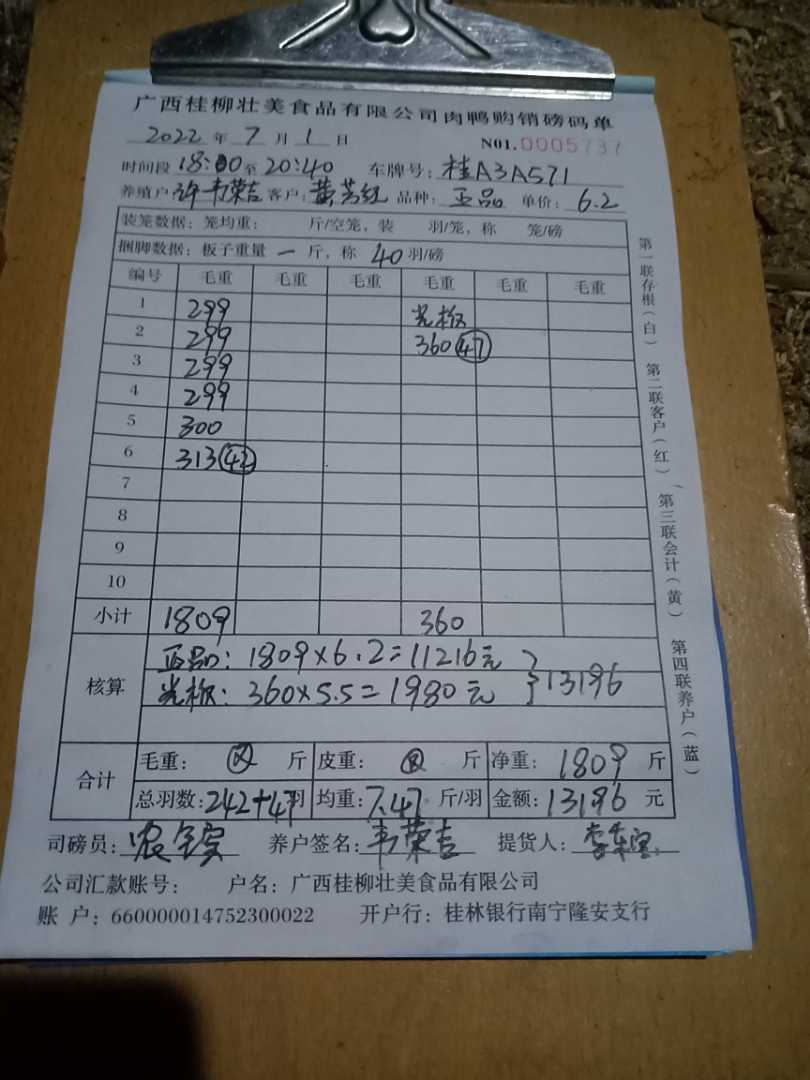 广西桂柳壮美食品有限公司肉鸭购销磅码单
2022 年 7 月 1 日 N01.0005737
时间段 18:00 至 20:40 车牌号: 桂A3A571
养殖户 许韦荣吉 客户: 黄芳红 品种: 正品 单价: 6.2
装笼数据: 笼均重: 斤/空笼, 装 羽/笼, 称 笼/磅
捆脚数据: 板子重量 一 斤, 称 40 羽/磅
编号 毛重 毛重 毛重 毛重 毛重 毛重
1 299 光板
2 299 360 47
3 299
4 299
5 300
6 313 42
7
8
9
10
小计 1809 360
核算
正品: 1809×6.2=11216元
光板: 360×5.5=1980元 }13196
合计
毛重: 斤 皮重: 斤 净重: 1809 斤
总羽数: 242+47羽 均重: 7.47 斤/羽 金额: 13196 元
司磅员: 养户签名: 韦荣吉 提货人:
公司汇款账号: 户名: 广西桂柳壮美食品有限公司
账 户: 660000014752300022 开户行: 桂林银行南宁隆安支行
第一联存根(白) 第二联客户(红) 第三联会计(黄) 第四联养户(蓝)